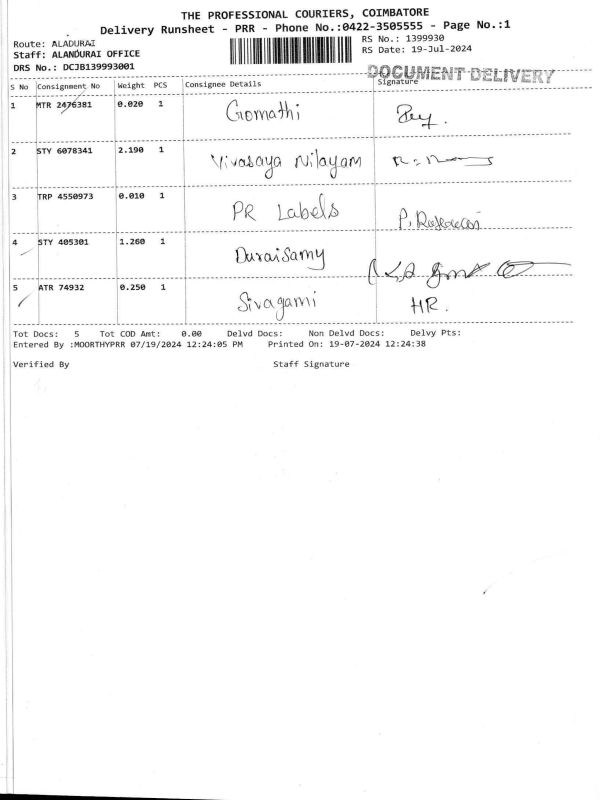 THE PROFESSIONAL COURIERS, COIMBATORE
Delivery Runsheet - PRR - Phone No.:0422-3505555 - Page No.:1
Route: ALADURAI
RS No.: 1399930
Staff: ALANDURAI OFFICE
RS Date: 19-Jul-2024
DRS No.: DCJB139993001
DOCUMENT DELIVERY
S No Consignment No Weight PCS Consignee Details Signature
1 MTR 2476381 0.020 1 Gomathi
2 STY 6078341 2.190 1 Vivasaya Nilayam
3 TRP 4550973 0.010 1 PR Labels
4 STY 405301 1.260 1 Duraisamy
5 ATR 74932 0.250 1 Sivagami HR.
Tot Docs: 5 Tot COD Amt: 0.00 Delvd Docs: Non Delvd Docs: Delvy Pts:
Entered By :MOORTHYPRR 07/19/2024 12:24:05 PM Printed On: 19-07-2024 12:24:38
Verified By Staff Signature